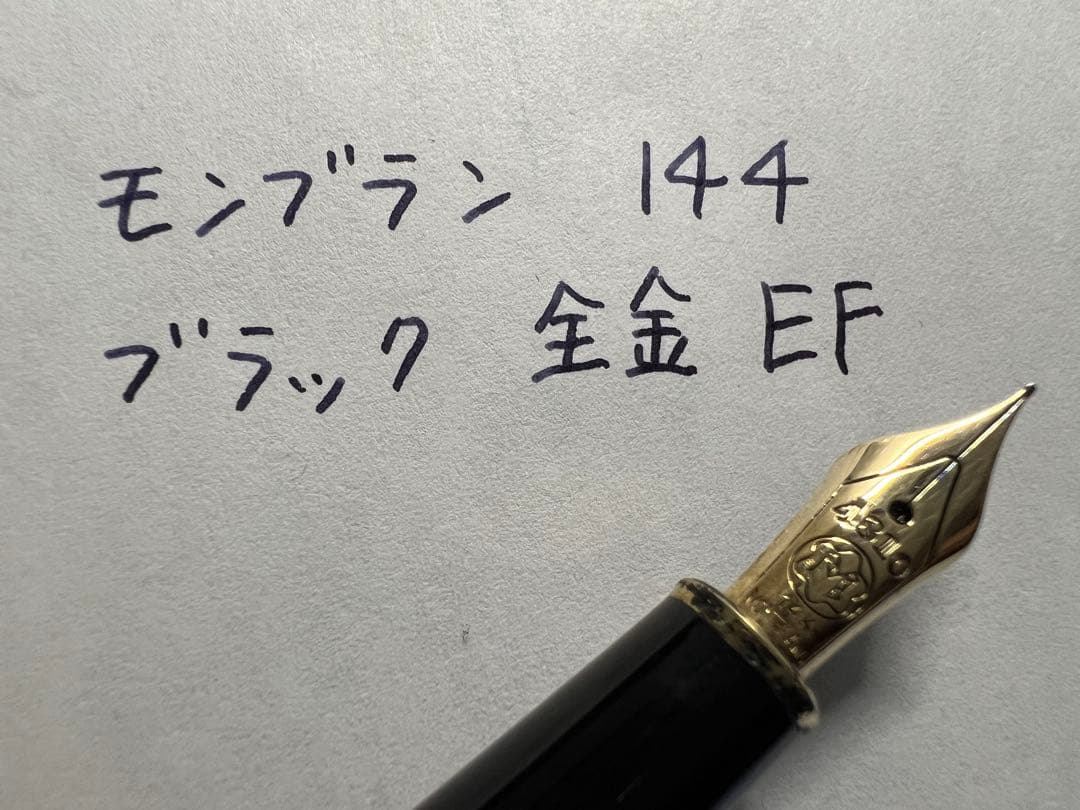 モンブラン 144
ブラック 全金 EF
4810